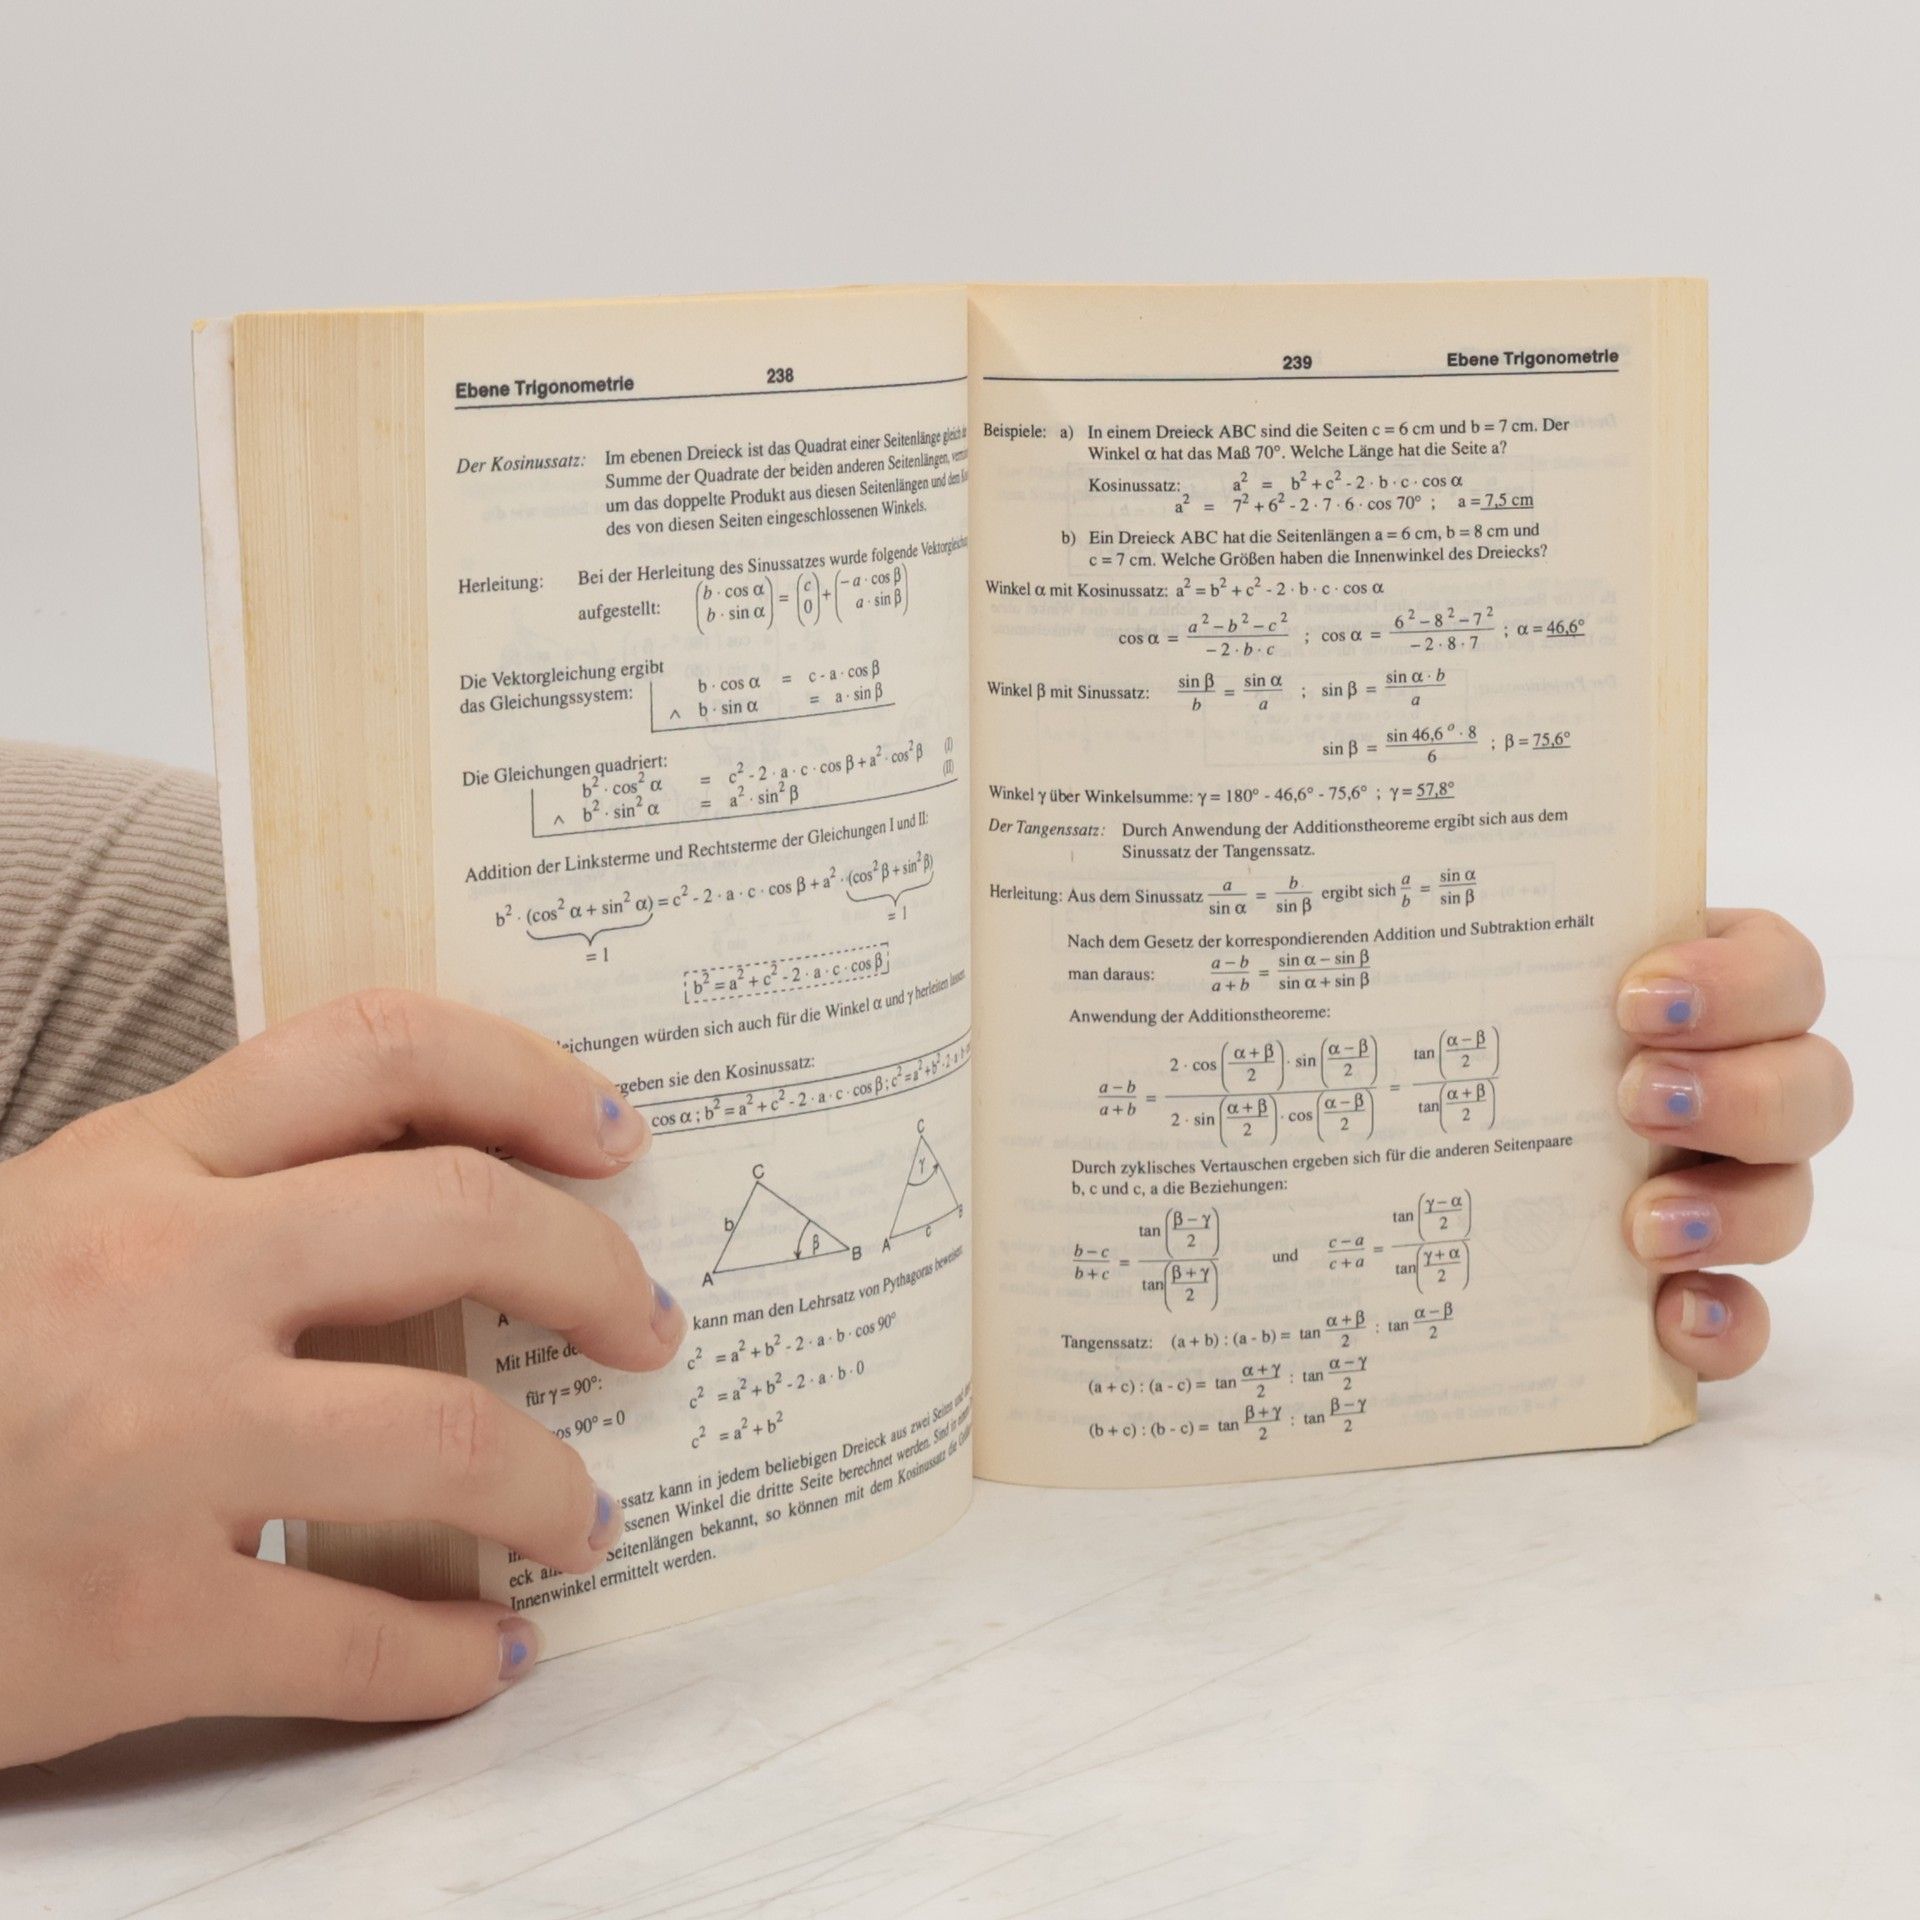 Ebene Trigonometrie 238
Der Kosinussatz: Im ebenen Dreieck ist das Quadrat einer Seitenlänge gleich
Summe der Quadrate der beiden anderen Seitenlängen,
um das doppelte Produkt aus diesen Seitenlängen und dem
des von diesen Seiten eingeschlossenen Winkels.
Herleitung: Bei der Herleitung des Sinussatzes wurde folgende
aufgestellt: (b · cos α / b · sin α) = (c / 0) + (– a · cos β / a · sin β)
Die Vektorgleichung ergibt
das Gleichungssystem: b · cos α = c - a · cos β
∧ b · sin α = a · sin β
Die Gleichungen quadriert:
b² · cos² α = c² - 2 · a · c · cos β + a² · cos² β (I)
∧ b² · sin² α = a² · sin² β (II)
Addition der Linksterme und Rechtsterme der Gleichungen I und II:
b² · (cos² α + sin² α) = c² - 2 · a · c · cos β + a² · (cos² β + sin² β)
= 1 = 1
b² = a² + c² - 2 · a · c · cos β
würden sich auch für die Winkel α und γ herleiten lassen
sie den Kosinussatz:
cos α ; b² = a² + c² - 2 · a · c · cos β ; c² = a² + b² - 2 · a · b
C
b
β
A B
C
γ
A c B
A
Mit Hilfe kann man den Lehrsatz von Pythagoras beweisen:
für γ = 90°: c² = a² + b² - 2 · a · b · cos 90°
cos 90° = 0 c² = a² + b² - 2 · a · b · 0
c² = a² + b²
kann in jedem beliebigen Dreieck aus zwei Seiten und
Winkel die dritte Seite berechnet werden. Sind in
Seitenlängen bekannt, so können mit dem Kosinussatz die
Innenwinkel ermittelt werden.
239 Ebene Trigonometrie
Beispiele: a) In einem Dreieck ABC sind die Seiten c = 6 cm und b = 7 cm. Der
Winkel α hat das Maß 70°. Welche Länge hat die Seite a?
Kosinussatz: a² = b² + c² - 2 · b · c · cos α
a² = 7² + 6² - 2 · 7 · 6 · cos 70° ; a = 7,5 cm
b) Ein Dreieck ABC hat die Seitenlängen a = 6 cm, b = 8 cm und
c = 7 cm. Welche Größen haben die Innenwinkel des Dreiecks?
Winkel α mit Kosinussatz: a² = b² + c² - 2 · b · c · cos α
cos α = (a² – b² – c²) / (– 2 · b · c) ; cos α = (6² – 8² – 7²) / (– 2 · 8 · 7) ; α = 46,6°
Winkel β mit Sinussatz: sin β / b = sin α / a ; sin β = (sin α · b) / a
sin β = (sin 46,6° · 8) / 6 ; β = 75,6°
Winkel γ über Winkelsumme: γ = 180° - 46,6° - 75,6° ; γ = 57,8°
Der Tangenssatz: Durch Anwendung der Additionstheoreme ergibt sich aus dem
Sinussatz der Tangenssatz.
Herleitung: Aus dem Sinussatz a / sin α = b / sin β ergibt sich a / b = sin α / sin β
Nach dem Gesetz der korrespondierenden Addition und Subtraktion erhält
man daraus: (a – b) / (a + b) = (sin α – sin β) / (sin α + sin β)
Anwendung der Additionstheoreme:
(a – b) / (a + b) = (2 · cos((α + β)/2) · sin((α – β)/2)) / (2 · sin((α + β)/2) · cos((α – β)/2)) = tan((α – β)/2) / tan((α + β)/2)
Durch zyklisches Vertauschen ergeben sich für die anderen Seitenpaare
b, c und c, a die Beziehungen:
(b – c) / (b + c) = tan((β – γ)/2) / tan((β + γ)/2) und (c – a) / (c + a) = tan((γ – α)/2) / tan((γ + α)/2)
Tangenssatz: (a + b) : (a - b) = tan (α + β)/2 : tan (α – β)/2
(a + c) : (a - c) = tan (α + γ)/2 : tan (α – γ)/2
(b + c) : (b - c) = tan (β + γ)/2 : tan (β – γ)/2